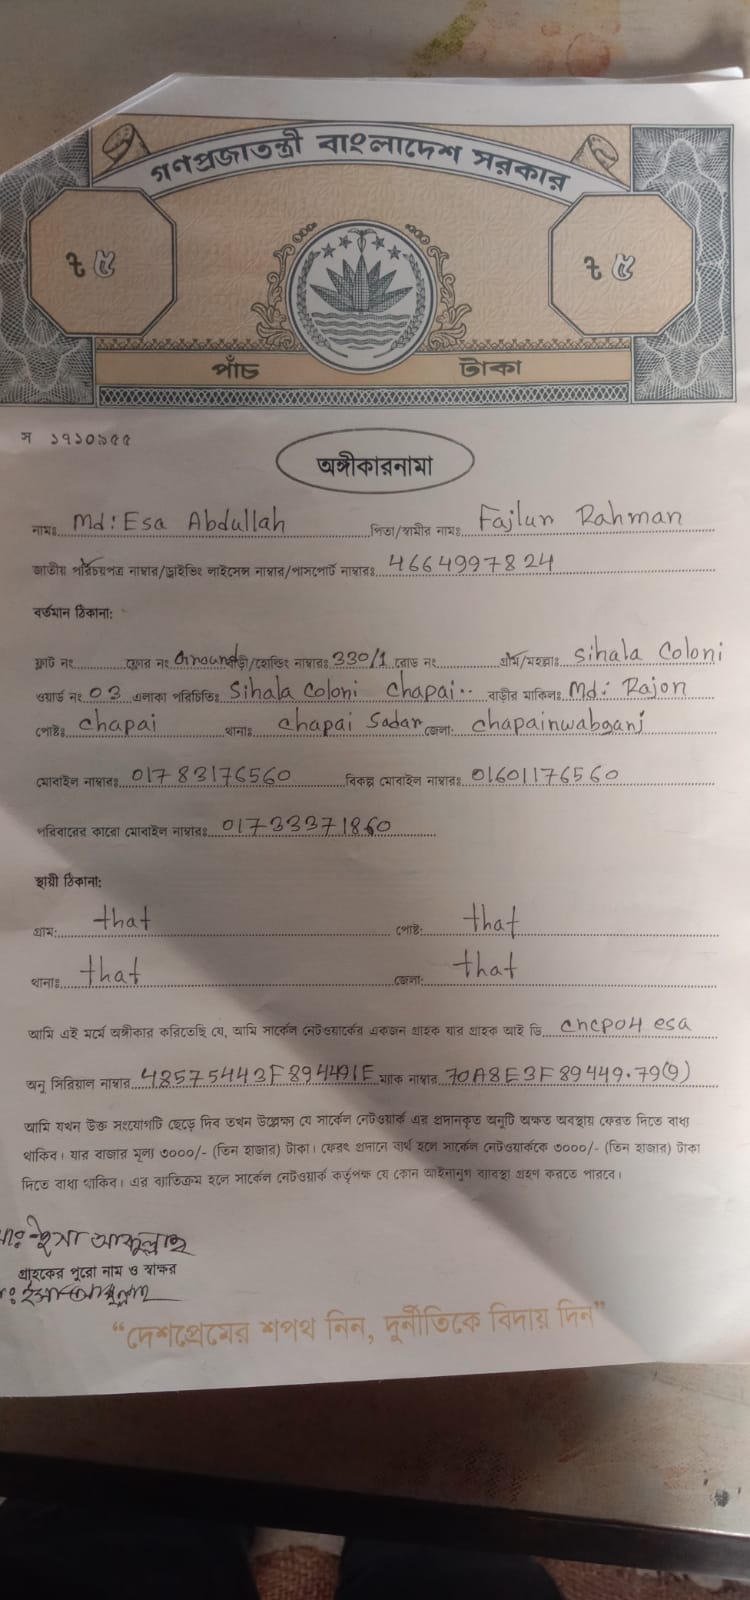 গণপ্রজাতন্ত্রী বাংলাদেশ সরকার
৳ ৫ ৳ ৫
পাঁচ টাকা
স ১৭১০৯৫৫
অঙ্গীকারনামা
নামঃ Md: Esa Abdullah পিতা/স্বামীর নামঃ Fajlur Rahman
জাতীয় পরিচয়পত্র নাম্বার/ড্রাইভিং লাইসেন্স নাম্বার/পাসপোর্ট নাম্বারঃ 4664997824
বর্তমান ঠিকানা:
ফ্লাট নং ফ্লোর নং Ground বাড়ী/হোল্ডিং নাম্বারঃ 330/1 রোড নং গ্রাম/মহল্লাঃ Sihala Coloni
ওয়ার্ড নং 03 এলাকা পরিচিতিঃ Sihala Coloni Chapai.. বাড়ীর মালিকঃ Md: Rajon
পোষ্টঃ Chapai থানাঃ Chapai Sadar জেলা: Chapainwabganj
মোবাইল নাম্বারঃ 01783176560 বিকল্প মোবাইল নাম্বারঃ 01601176560
পরিবারের কারো মোবাইল নাম্বারঃ 01733371860
স্থায়ী ঠিকানা:
গ্রাম: that পোষ্ট: that
থানাঃ that জেলা: that
আমি এই মর্মে অঙ্গীকার করিতেছি যে, আমি সার্কেল নেটওয়ার্কের একজন গ্রাহক যার গ্রাহক আই ডি cncp04 esa
অনু সিরিয়াল নাম্বার 48575443F894491E ম্যাক নাম্বার 70A8E3F89449.79(9)
আমি যখন উক্ত সংযোগটি ছেড়ে দিব তখন উল্লেক্ষ্য যে সার্কেল নেটওয়ার্ক এর প্রদানকৃত অনুটি অক্ষত অবস্থায় ফেরত দিতে বাধ্য
থাকিব। যার বাজার মূল্য ৩০০০/- (তিন হাজার) টাকা। ফেরৎ প্রদানে ব্যর্থ হলে সার্কেল নেটওয়ার্ককে ৩০০০/- (তিন হাজার) টাকা
দিতে বাধ্য থাকিব। এর ব্যতিক্রম হলে সার্কেল নেটওয়ার্ক কর্তৃপক্ষ যে কোন আইনানুগ ব্যাবস্থা গ্রহণ করতে পারবে।
মোঃ ইসা আব্দুল্লাহ
গ্রাহকের পুরো নাম ও স্বাক্ষর
“দেশপ্রেমের শপথ নিন, দুর্নীতিকে বিদায় দিন”